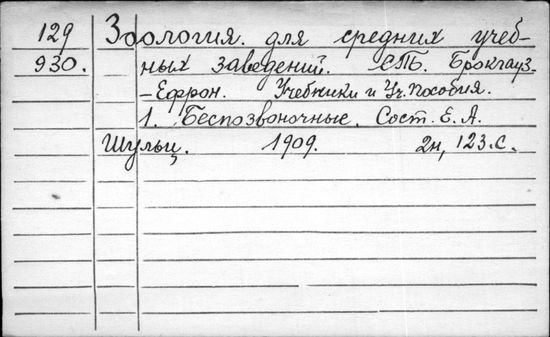 129 Зоология. для средних учеб-
930. ных заведений. СПб. Брокгауз-
-Ефрон. Учебники и Уч. Пособия.
1. Беспозвоночные. Сост. Е. А.
Шульц. 1909. 2н, 123.с.